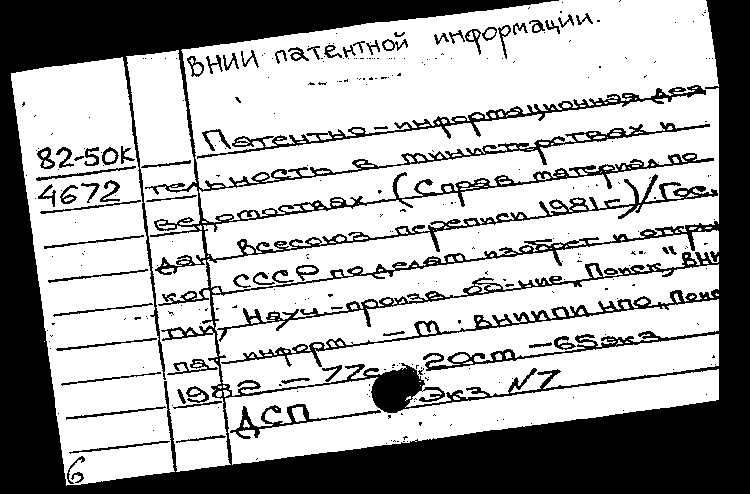 ВНИИ патентной информации.
82-50к
4672
Патентно-информационная дея-
тельность в министерствах и
ведомствах. (Справ. материал по
дан Всесоюз переписи 1981г.)/Гос.
ком СССР по делам изобрет и откры
тий, Науч.-произв об-ние „Поиск,“ ВНИ
пат информ. - М : ВНИИПИ НПО „Поис
1982 - 77с 20см - 65экз
ДСП Экз N7
6